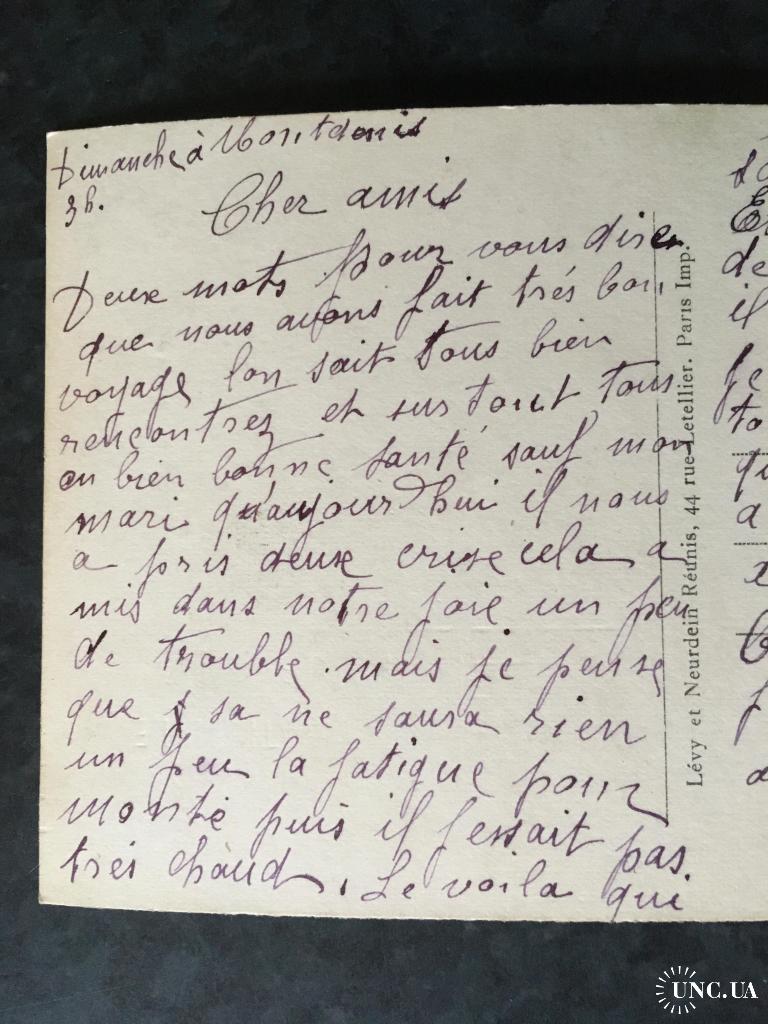 Dimanche à Montdenis
3h.
Cher amis
Deux mots pour vous dire
que nous avons fait trés bon
voyage lon sait tous bien
rencontrez et surtout tous
en bien bonne santé sauf mon
mari qu'aujour'hui il nous
a pris deux crise cela a
mis dans notre joie un peu
de trouble. mais je pense
que sa ne saura rien
un peu la fatigue pour
monté puis il fessait pas
trés chaud. Le voila qui
Lévy et Neurdein Réunis, 44 rue Letellier. Paris Imp.
de
il
je
to
qu
a
UNC.UA